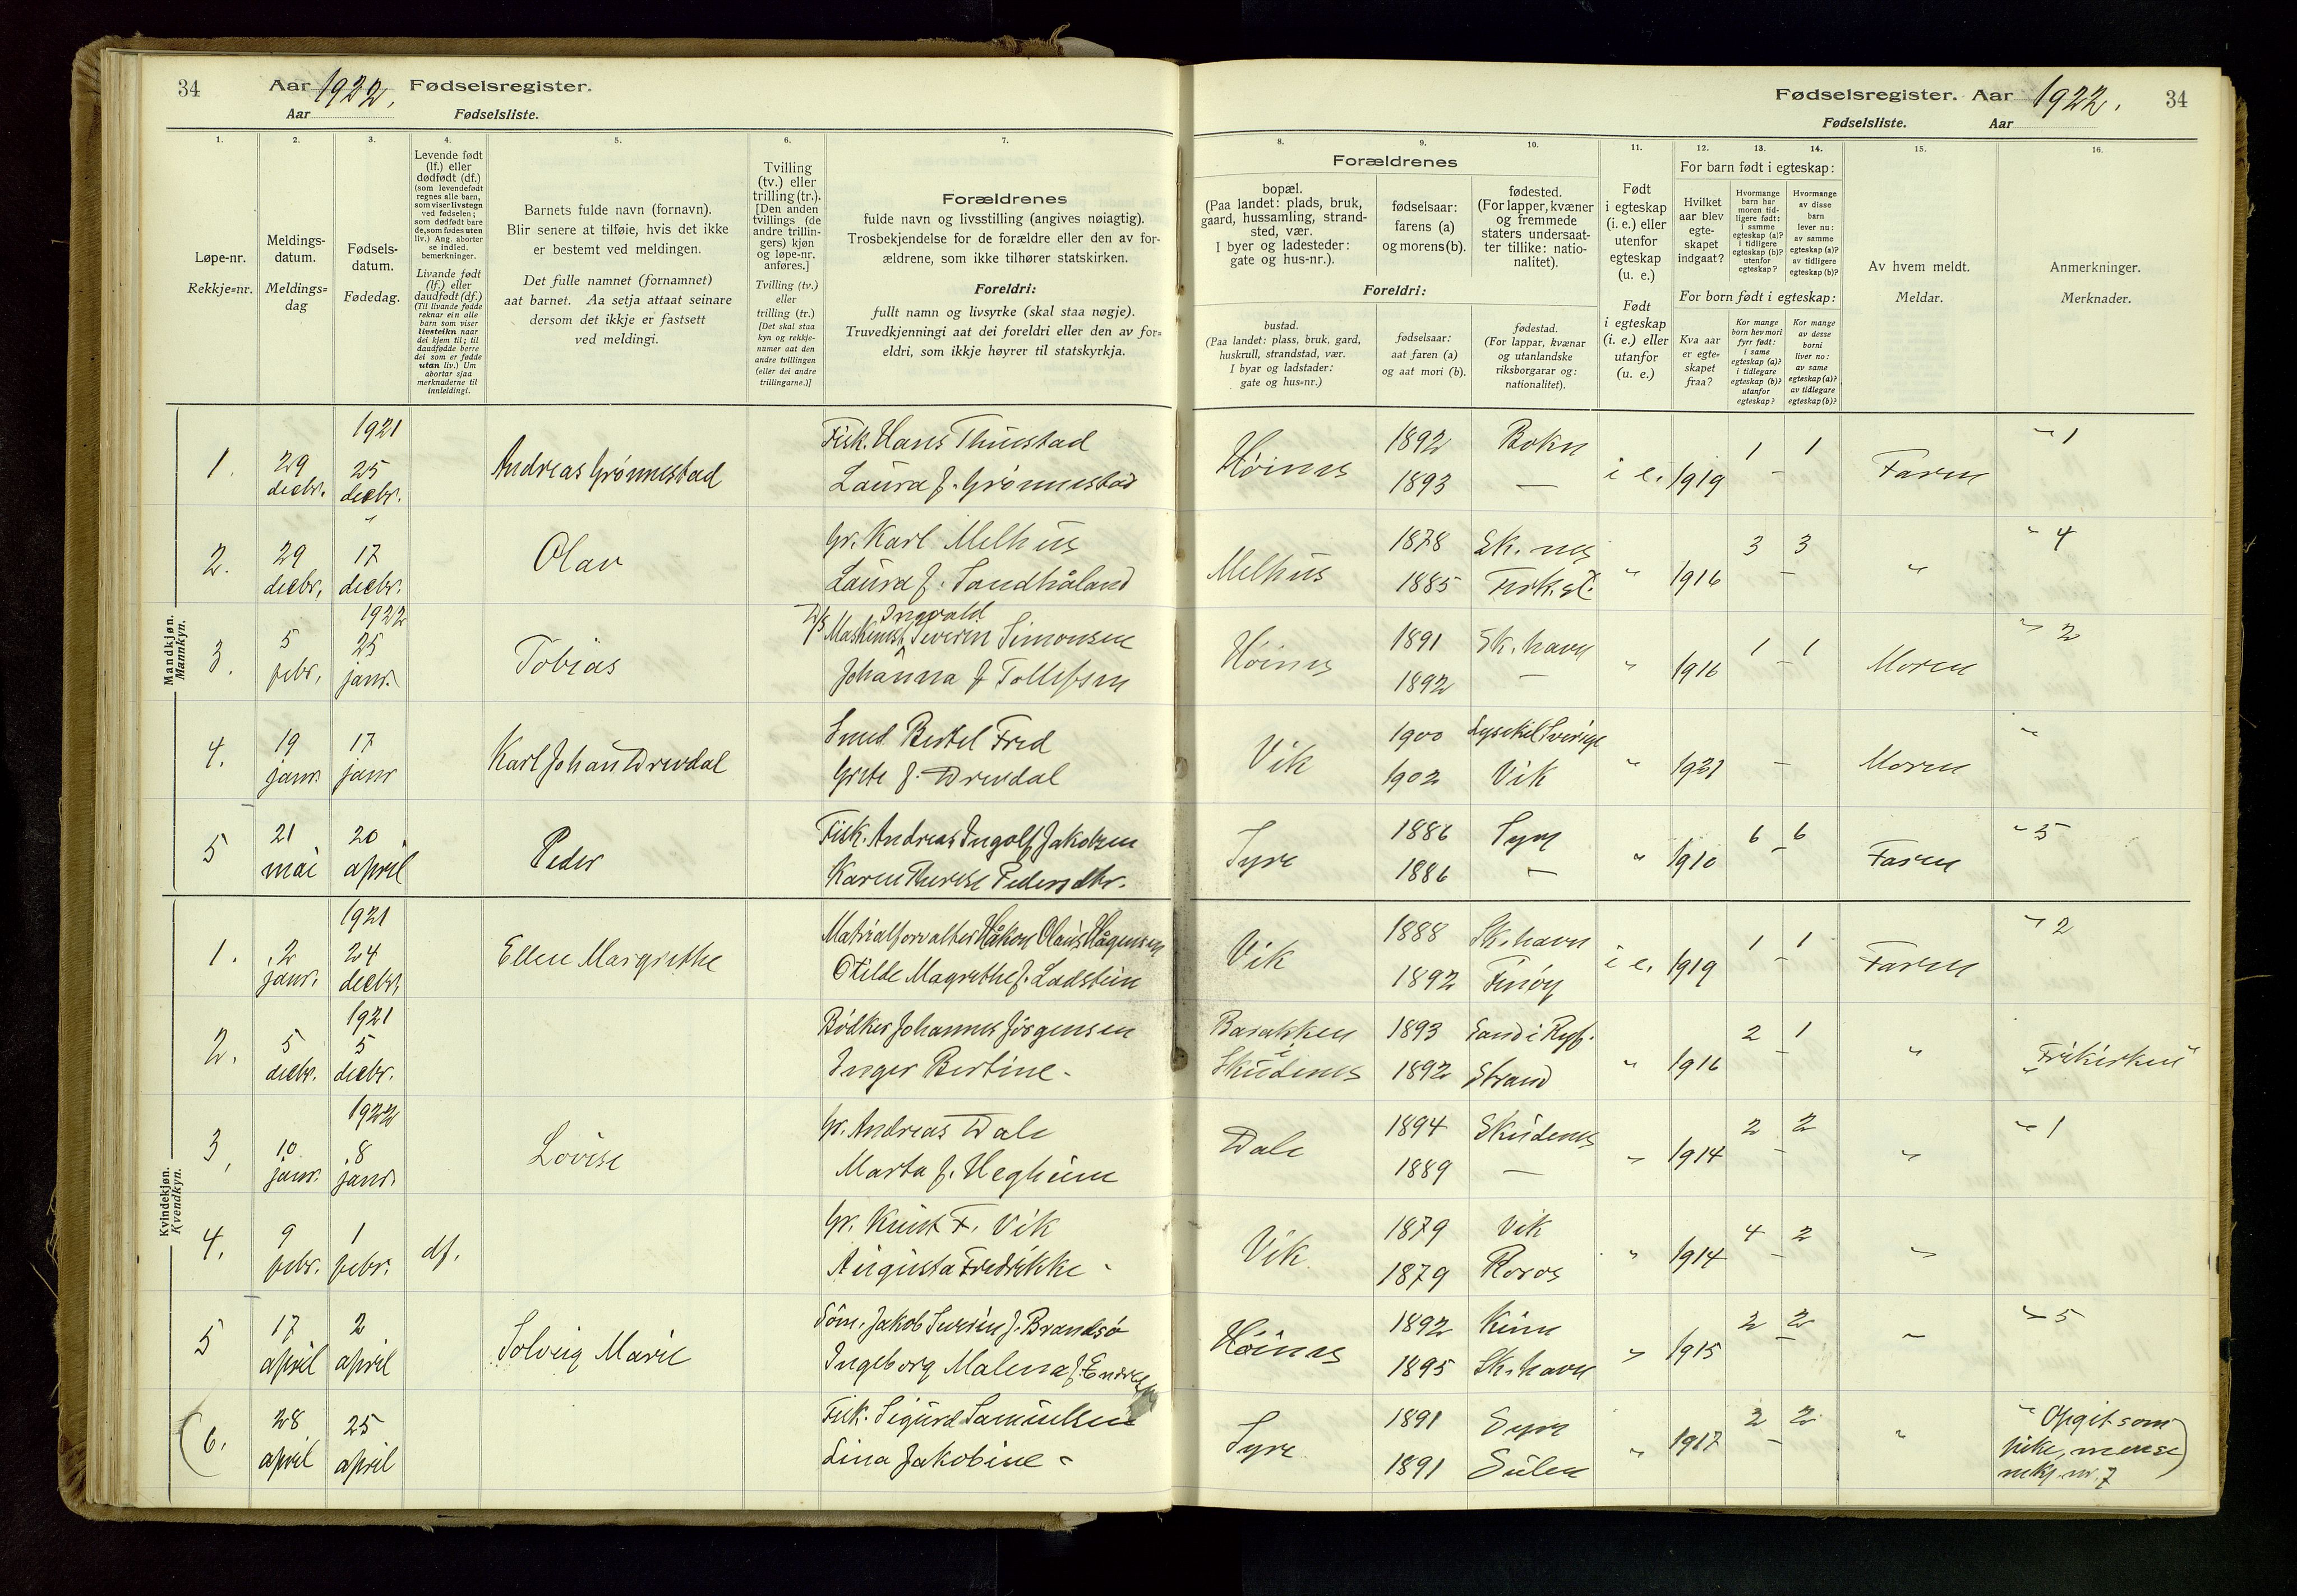 34
Aar 1922. Fødselsregister.
Aar Fødselsliste.
1. 2. 3. 4. 5. 6. 7.
Løpe-nr.
Rekkje=nr.
Meldings-
datum.
Meldings=
dag
Fødsels-
datum.
Fødedag.
Levende født
(lf.) eller
dødfødt (df.)
(som levendefødt
regnes alle barn,
som viser livstegn
ved fødselen;
som dødfødt bare
de, som fødes uten
liv.) Ang. aborter
se indled.
bemerkninger.
Livande født
(lf.) eller
daudfødt (df.)
(Til livande fødde
reknar ein alle
barn som viser
livsteikn naar
dei kjem til; til
daudfødde berre
dei som er fødde
utan liv.) Um
abortar sjaa
merknaderne til
innleidingi.
Barnets fulde navn (fornavn).
Blir senere at tilføie, hvis det ikke
er bestemt ved meldingen.
Det fulle namnet (fornamnet)
aat barnet. Aa setja attaat seinare
dersom det ikkje er fastsett
ved meldingi.
Tvilling
(tv.) eller
trilling (tr.).
[Den anden
tvillings (de
andre trillin-
gers) kjøn
og løpe-nr.
anføres.]
Tvilling (tv.)
eller
trilling (tr.)
[Det skal staa
kyn og rekkje-
numer aat den
andre tvillingen
(eller dei andre
trillingarne.)]
Forældrenes
fulde navn og livsstilling (angives nøiagtig).
Trosbekjendelse for de forældre eller den av for-
ældrene, som ikke tilhører statskirken.
Foreldri:
fullt namn og livsyrke (skal staa nøgje).
Truvedkjenningi aat dei foreldri eller den av for=
eldri, som ikkje høyrer til statskyrkja.
Mandkjøn.
Mannkyn.
1. 29 decbr. 1921 25 decbr. Andreas Grønnestad
Fisk. Hans Thuestad
Laura f. Grønnestad
2. 29 decbr. " 17 decbr. Olav
Gr. Karl Melhus
Laura f. Sandhåland
3. 5 febr. 1922 25 janr. Tobias
Ingvald
Maskinist Severin Simonsen
Johanna f Tollefsen
4. 19 janr. 17 janr Karl Johan Drevdal
Smed Bertel Fred
Grete f. Drevdal
5 21 mai 20 april Peder
Fisk. Andreas Ingolf Jakobsen
Karen Therese Pedersdtr.
Kvindekjøn.
Kvendkyn.
1. 2 janr. 1921 24 decbr. Ellen Margrethe
Matrialforvalter Håkon Olaus Hågensen
Otilde Magrethe f. Ladstein
2. 5 decbr. 1921 5 decbr.
Bødker Johannes Jörgensen
Inger Bertine -
3. 10 janr. 1922 8 janr. Lovise
Gr. Andreas Dale
Marta f. Heghum
4. 9 febr. 1 febr. df.
Gr. Knut F. Vik
Augusta Fredrikke -
5 17 april 2 april Solveig Marie
Söm. Jakob Severin f. Brandsö
Ingeborg Malena f. Endresen
(6. 28 april 25 april
Fisk. Sigurd Samuelsen
Lina Jakobine -
Fødselsregister. Aar 1922. 34
Fødselsliste. Aar
8. 9. 10. 11. 12. 13. 14. 15. 16.
Forældrenes
bopæl.
(Paa landet: plads, bruk,
gaard, hussamling, strand-
sted, vær.
I byer og ladesteder:
gate og hus-nr.).
fødselsaar:
farens (a)
og morens (b).
fødested.
(For lapper, kvæner
og fremmede
staters undersaat-
ter tillike: natio-
nalitet).
Foreldri:
bustad.
(Paa landet: plass, bruk, gard,
huskrull, strandstad, vær.
I byar og ladstader:
gate og hus=nr.)
fødselsaar:
aat faren (a)
og aat mori (b).
fødestad.
(For lappar, kvænar
og utanlandske
riksborgarar og:
nationalitet).
Født
i egteskap
(i. e.) eller
utenfor
egteskap
(u. e.)
Født
i egteskap
(i. e.) eller
utanfor
(u. e.)
For barn født i egteskap:
Hvilket
aar blev
egte-
skapet
indgaat?
Hvormange
barn har
moren tid-
ligere født:
i samme
egteskap (a)?
i tidligere
egteskap (b)?
utenfor
egteskap?
Hvormange
av disse
barn
lever nu:
av samme
egteskap (a)?
av tidligere
egteskap (b)?
For born født i egteskap:
Kva aar
er egte=
skapet
fraa?
Kor mange
born hev mori
fyrr født:
i same
egteskap (a)?
i tidlegare
egteskap (b)?
utanfor
egteskap?
Kor mange
av desse
borni
liver no:
av same
egteskap (a)?
av tidlegare
egteskap (b)?
Av hvem meldt.
Meldar.
Anmerkninger.
Merknader.
Høines 1892 Bokn i e. 1919 1 1 Faren " 1
1893 —
Melhus 1878 Sk. nes " 1916 3 3 " " 4
1885
Høines 1891 Sk. havn " 1916 1 1 Moren " 2
1892 —
Vik 1900 Lysekil Sverige " 1921 — Moren "
1902 Vik
Syre 1886 Syre " 1910 6 6 Faren " 5
1886 —
Vik 1888 Sk. havn i e. 1919 1 1 Faren " 2
1892 Finöy
Barakken 1893 Sand i Ryf. " 1916 2 1 " "Frikirken"
i Skudenes 1892 Strand
Dale 1894 Skudenes " 1914 2 2 " " 1
1889 —
Vik 1879 Vik " 1914 4 2 "
1879 Roros
Høines 1892 " 1915 2 2 " " 5
1895 Sk. havn
Syre 1891 Syre " 1917 2 2 " " Opgit som
1891 Sulen pike, men se
rekj. nr. 7)